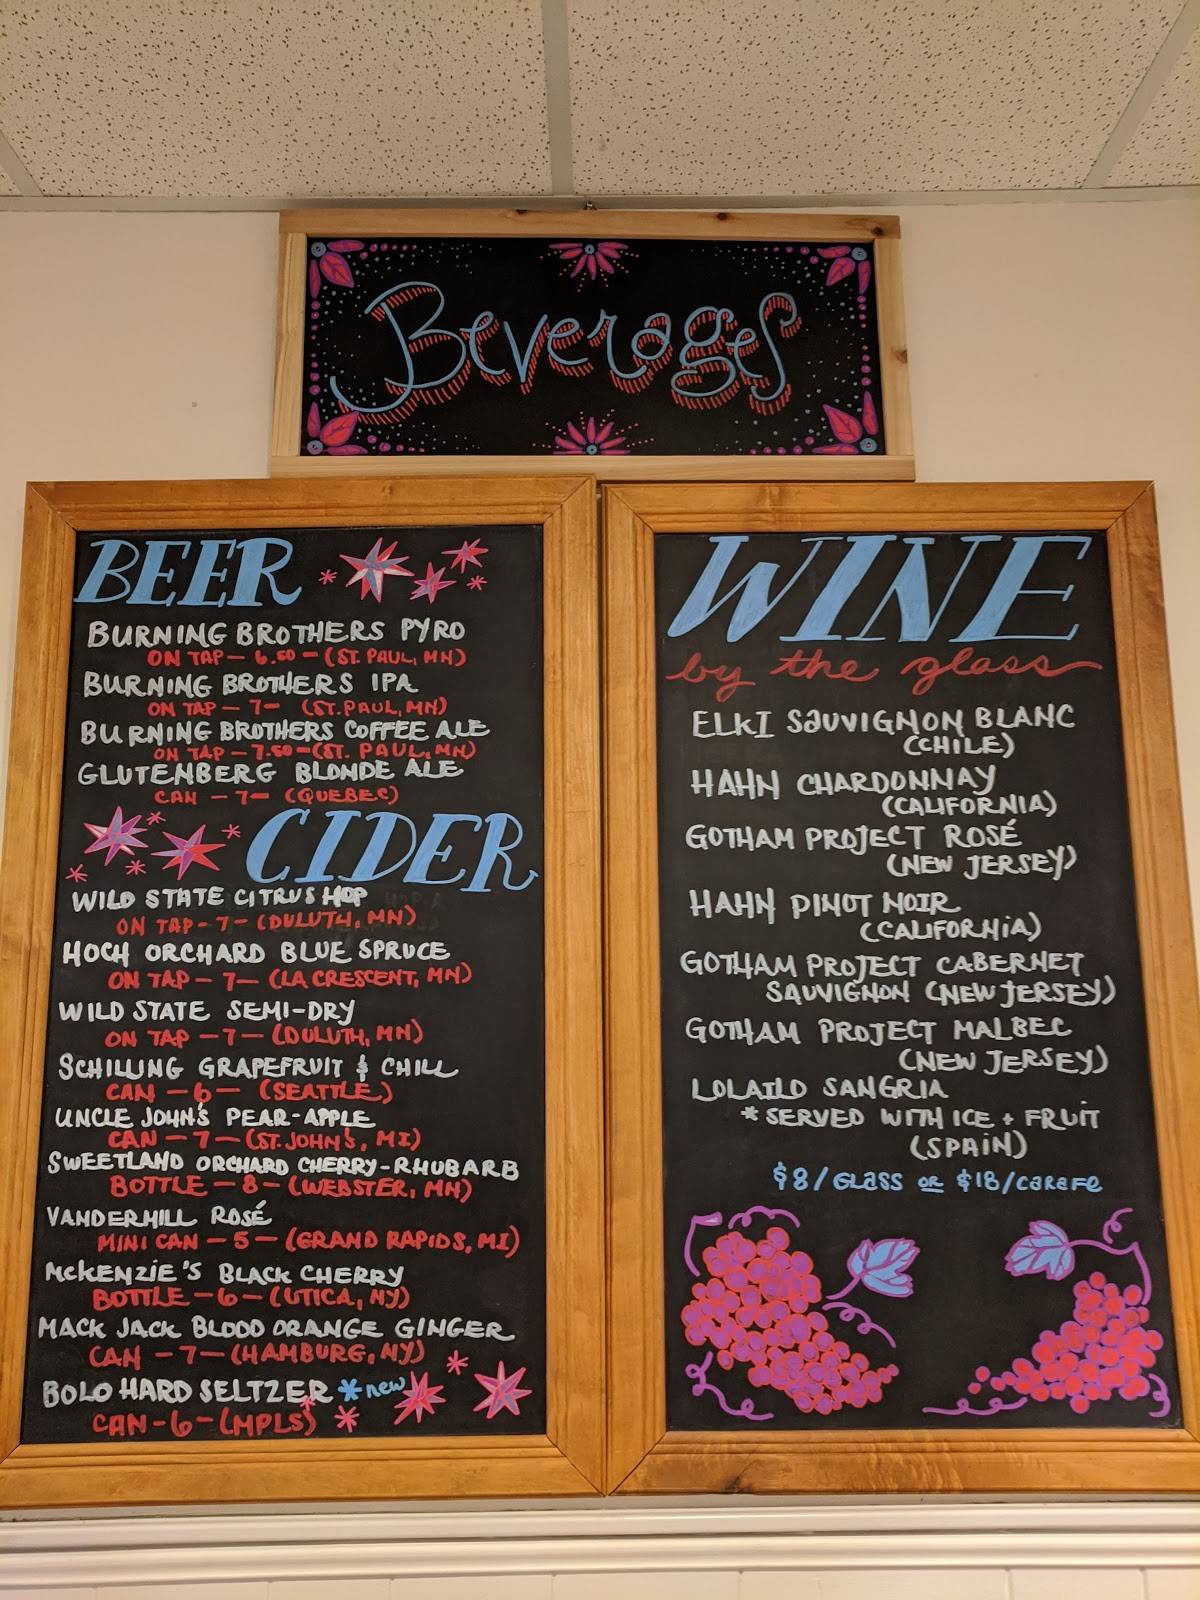 Beverages
BEER
BURNING BROTHERS PYRO
ON TAP - 6.50 - (ST. PAUL, MN)
BURNING BROTHERS IPA
ON TAP - 7 - (ST. PAUL, MN)
BURNING BROTHERS COFFEE ALE
ON TAP - 7.50 - (ST. PAUL, MN)
GLUTENBERG BLONDE ALE
CAN - 7 - (QUEBEC)
CIDER
WILD STATE CITRUS HOP
ON TAP - 7 - (DULUTH, MN)
HOCH ORCHARD BLUE SPRUCE
ON TAP - 7 - (LA CRESCENT, MN)
WILD STATE SEMI-DRY
ON TAP - 7 - (DULUTH, MN)
SCHILLING GRAPEFRUIT & CHILL
CAN - 6 - (SEATTLE)
UNCLE JOHN'S PEAR-APPLE
CAN - 7 - (ST. JOHN'S, MI)
SWEETLAND ORCHARD CHERRY-RHUBARB
BOTTLE - 8 - (WEBSTER, MN)
VANDERMILL ROSÉ
MINI CAN - 5 - (GRAND RAPIDS, MI)
McKENZIE'S BLACK CHERRY
BOTTLE - 6 - (UTICA, NY)
MACK JACK BLOOD ORANGE GINGER
CAN - 7 - (HAMBURG, NY)
BOLO HARD SELTZER *new
CAN - 6 - (MPLS)
WINE
by the glass
ELKI SAUVIGNON BLANC
(CHILE)
HAHN CHARDONNAY
(CALIFORNIA)
GOTHAM PROJECT ROSÉ
(NEW JERSEY)
HAHN PINOT NOIR
(CALIFORNIA)
GOTHAM PROJECT CABERNET
SAUVIGNON (NEW JERSEY)
GOTHAM PROJECT MALBEC
(NEW JERSEY)
LOLAILO SANGRIA
*SERVED WITH ICE + FRUIT
(SPAIN)
$8/GLASS OR $18/CARAFE